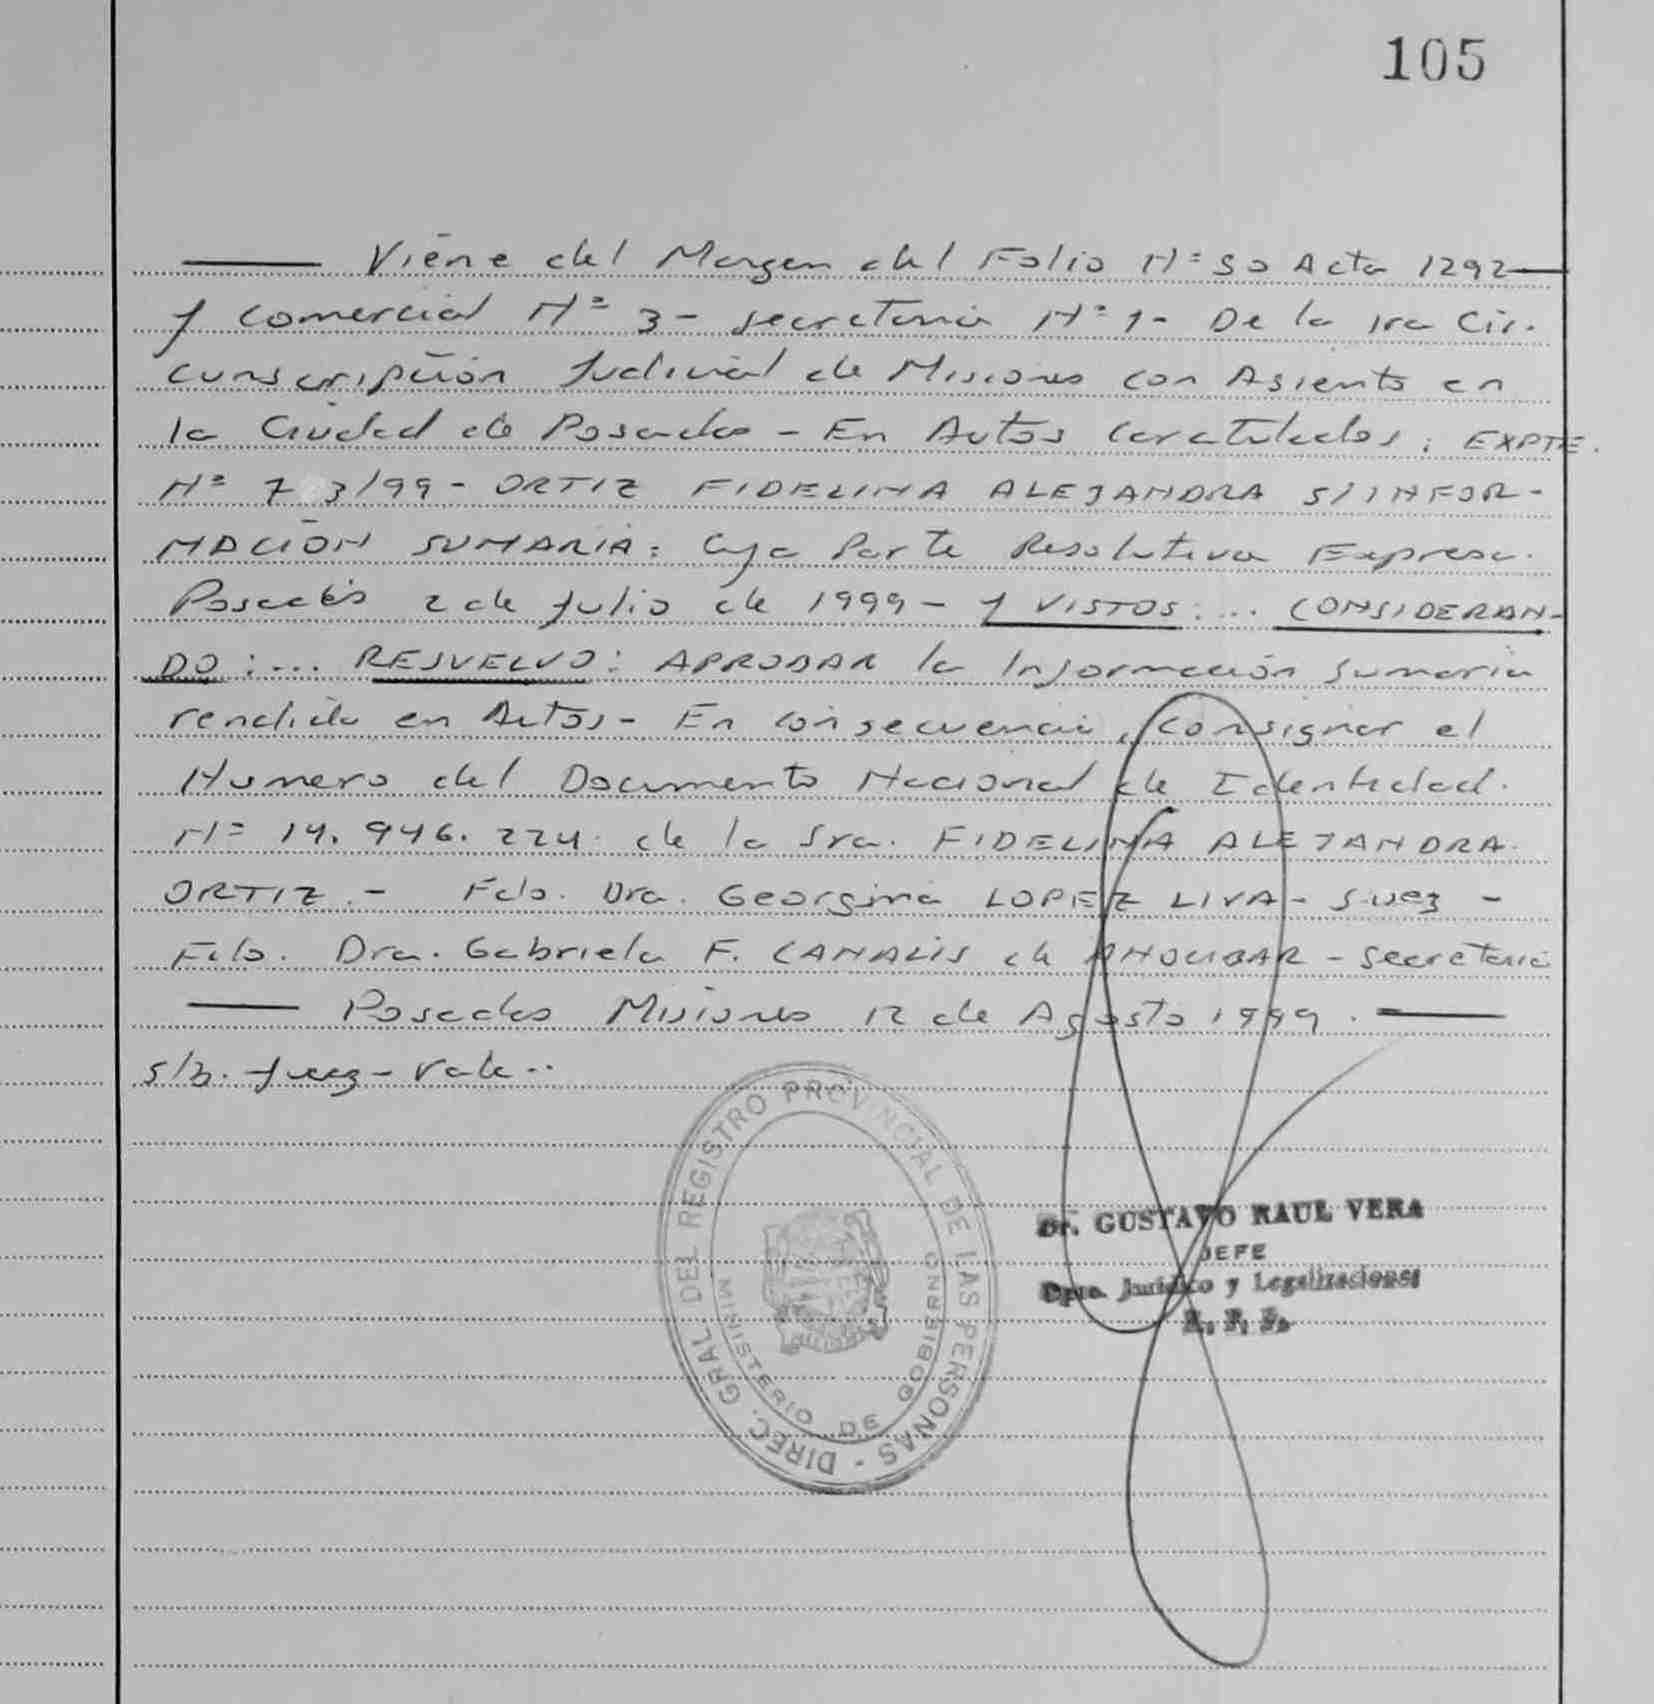 105
Viene del Margen del Folio Nº 90 Acta 1292
y Comercial Nº 3 - Secretaria Nº 1 - De la 1ra Cir.
cunscripción Judicial de Misiones con Asiento en
la Ciudad de Posadas - En Autos Caratulados: EXPTE.
Nº 7 3/99 - ORTIZ FIDELINA ALEJANDRA S/INFOR-
MACIÓN SUMARIA: Cuya Parte Resolutiva Expresa.
Posadas 2 de Julio de 1999 - Y VISTOS: ... CONSIDERAN-
DO: ... RESUELVO: APROBAR la Información Sumaria
rendida en Autos - En consecuencia, consignar el
Numero del Documento Nacional de Identidad.
Nº 14.946.224. de la Sra. FIDELINA ALEJANDRA
ORTIZ. - Fdo. Dra. Georgina LOPEZ LIVA - Juez -
Fdo. Dra. Gabriela F. CANALIS de - Secretaria
Posadas Misiones 12 de Agosto 1999.
S/B. Juez - Vale..
DIREC. GRAL. DEL REGISTRO PROVINCIAL DE LAS PERSONAS -
MINISTERIO DE GOBIERNO
Dr. GUSTAVO RAUL VERA
JEFE
Dpto. Jurídico y Legalizaciones
R. P. P.